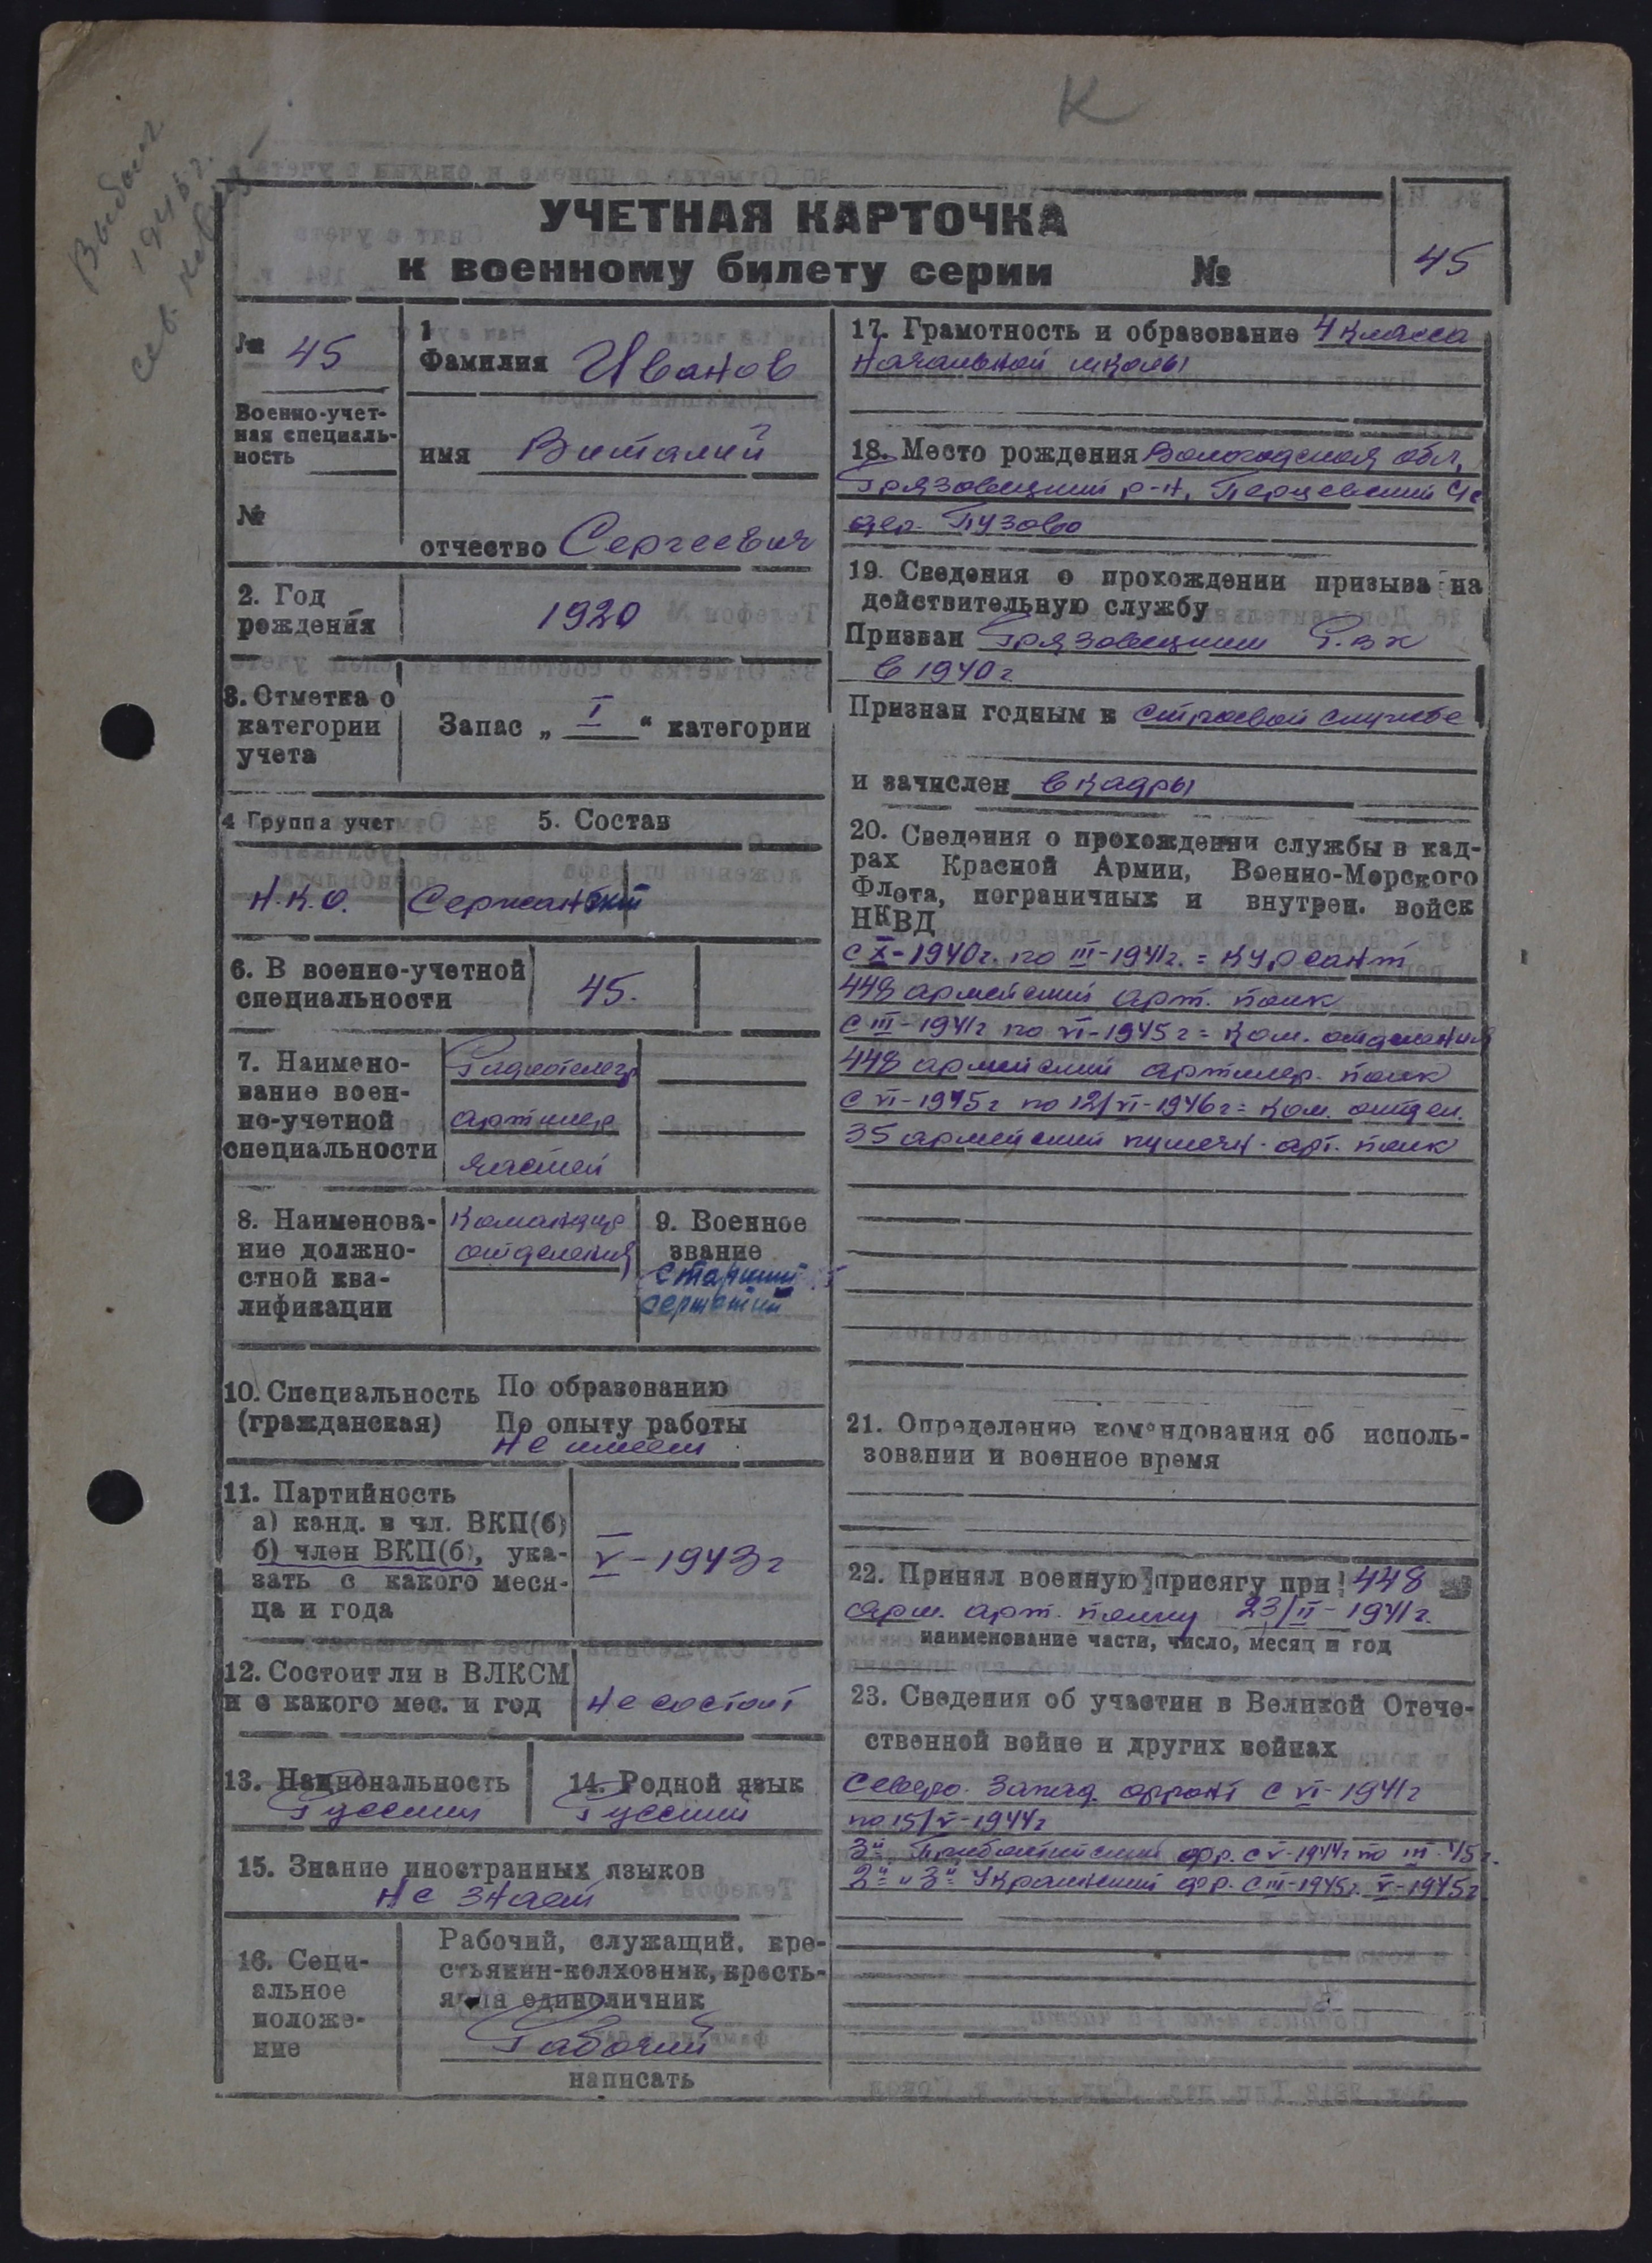 К
Выбыл
194 г.
УЧЕТНАЯ КАРТОЧКА
к военному билету серии №
45
№ 45
Военно-учет-
ная специаль-
ность
№
1
Фамилия Иванов
имя Виталий
отчество Сергеевич
2. Год
рождения
1920
3. Отметка о
категории
учета
Запас „ I “ категории
4 Группа учет
Н.К.О.
5. Состав
Сержантский
6. В военно-учетной
специальности
45.
7. Наимено-
вание воен-
но-учетной
специальности
Радиотелегр
артиллер
частей
8. Наименова-
ние должно-
стной ква-
лификации
Командир
отделения
9. Военное
звание
Старший
сержант
10. Специальность По образованию
(гражданская) По опыту работы
не имеет
11. Партийность
а) канд. в чл. ВКП(б)
б) член ВКП(б), ука-
зать с какого меся-
ца и года
V-1943г
12. Состоит ли в ВЛКСМ
и с какого мес. и год
Не состоит
13. Национальность
Русский
14. Родной язык
Русский
15. Знание иностранных языков
Не знает
16. Соци-
альное
положе-
ние
Рабочий, служащий, кре-
стьянин-колхозник, кресть-
янин единоличник
Рабочий
написать
17. Грамотность и образование 4 класса
начальной школы
18. Место рождения Вологодская обл,
Грязовецкий р-н, Перцевский с/с
дер. Пузово
19. Сведения о прохождении призыва на
действительную службу
Призван Грязовецким Р.ВК
в 1940г
Признан годным к строевой службе
и зачислен в кадры
20. Сведения о прохождении службы в кад-
рах Красной Армии, Военно-Морского
Флота, пограничных и внутрен. войск
НКВД
с X-1940г. по III-1941г. = курсант
448 армейский арт. полк
с III-1941г по VI-1945г = ком. отделения
448 армейский артиллер. полк
с VI-1945г по 12/VI-1946г = ком. отдел.
35 армейский пушечн. арт. полк
21. Определение командования об исполь-
зовании и военное время
22. Принял военную присягу при 448
арм. арт. полку 23/II-1941г.
наименование части, число, месяц и год
23. Сведения об участии в Великой Отече-
ственной войне и других войнах
Северо. Запад. фронт с VI-1941г
по 15/V-1944г
3й Прибалтийский фр. с V-1944г по III-45г.
2й и 3й Украинский фр. с III-1945г. V-1945г